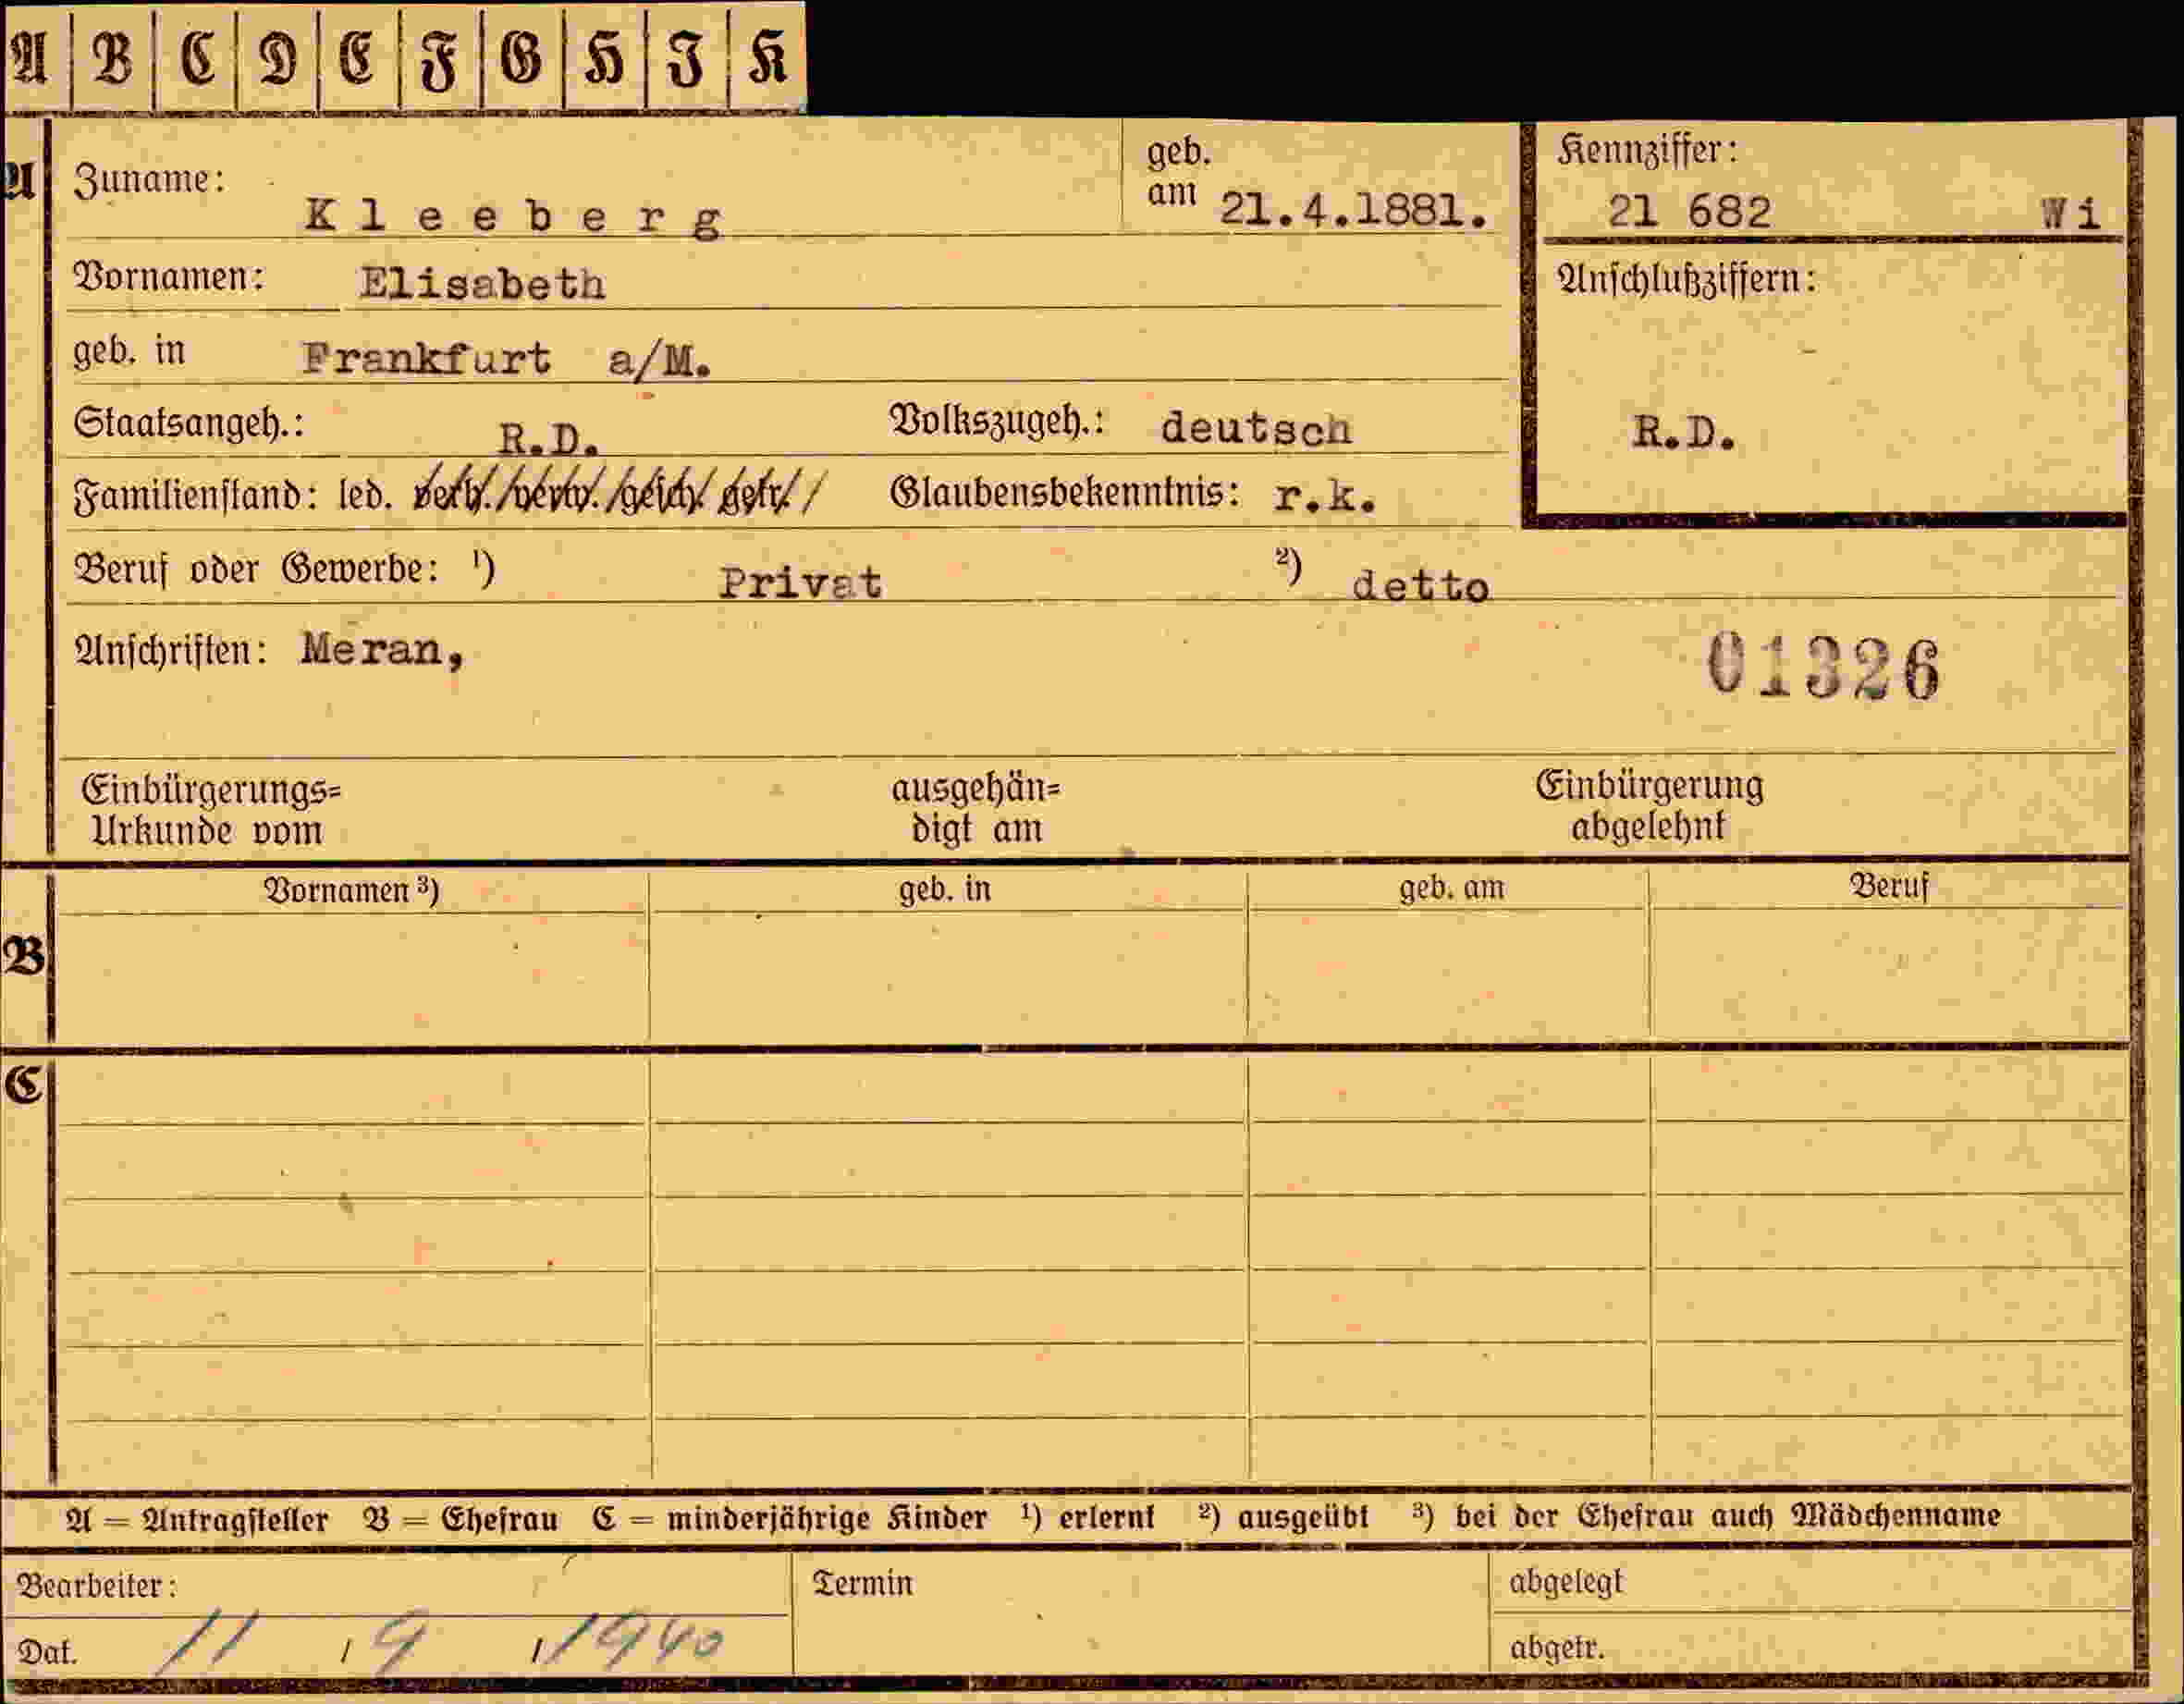 A B C D E F G H I K
A Zuname: K l e e b e r g geb. am 21.4.1881. Kennziffer: 21 682 Wi
Vornamen: Elisabeth Anschlußziffern:
geb. in Frankfurt a/M.
Staatsangeh.: R.D. Volkszugeh.: deutsch R.D.
Familienstand: led. verh./verw./gesch./getr./ Glaubensbekenntnis: r.k.
Beruf oder Gewerbe: ¹) Privat ²) detto
Anschriften: Meran, 01326
Einbürgerungs= ausgehän= Einbürgerung
Urkunde vom digt am abgelehnt
Vornamen ³) geb. in geb. am Beruf
B
C
A = Antragsteller B = Ehefrau C = minderjährige Kinder ¹) erlernt ²) ausgeübt ³) bei der Ehefrau auch Mädchenname
Bearbeiter: Termin abgelegt
Dat. 11 / 9 / 1940 abgetr.